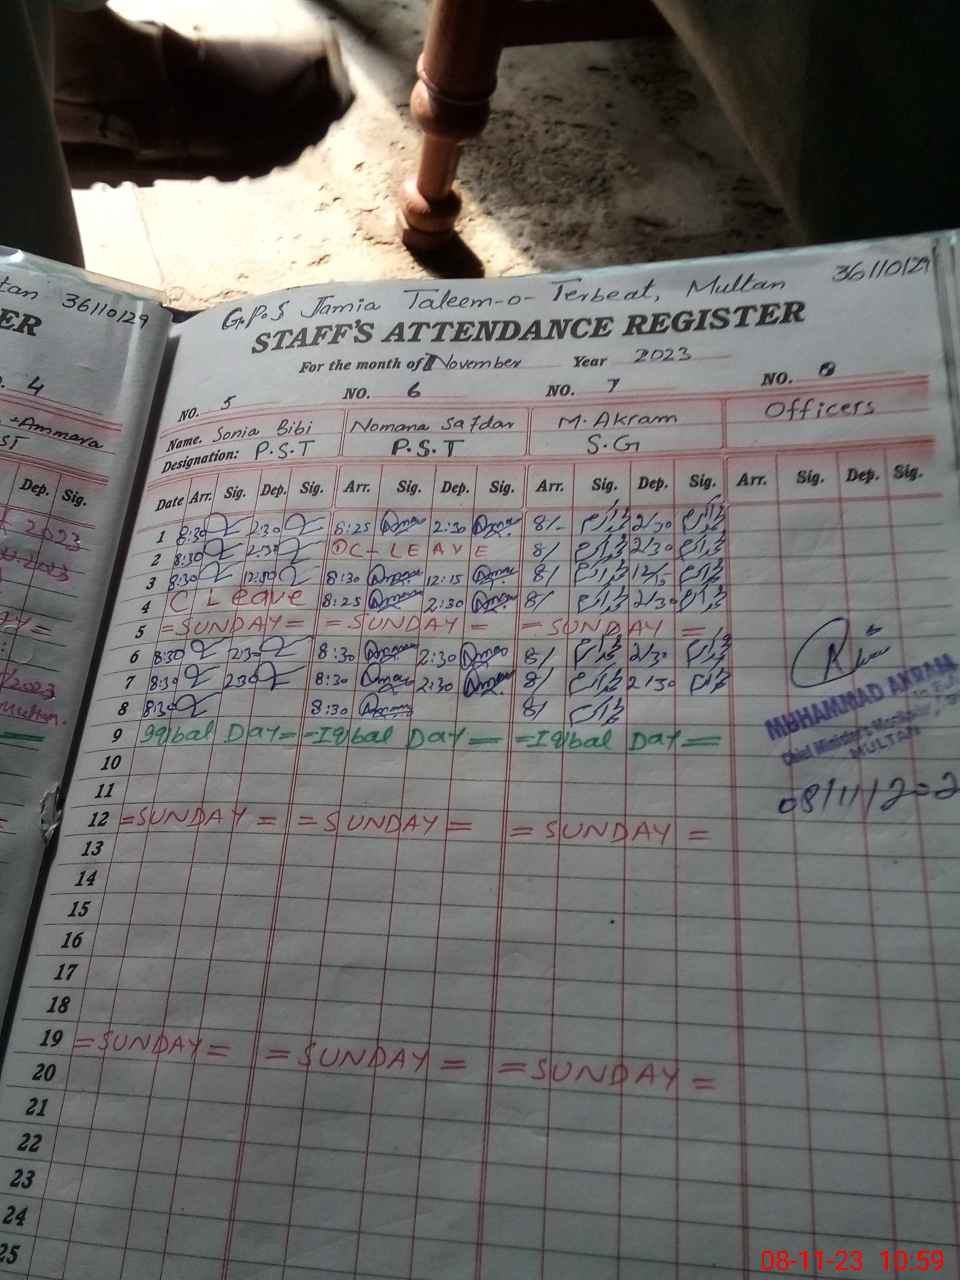 tan 36110129
ER
. 4
Ammara
ST
Dep. Sig.
2023
G.P.S Jamia Taleem-o-Terbeat, Multan 36110129
STAFF'S ATTENDANCE REGISTER
For the month of November Year 2023
NO. 5 NO. 6 NO. 7 NO. 8
Name. Sonia Bibi Nomana Safdar M. Akram Officers
Designation: P.S.T P.S.T S.G
Date Arr. Sig. Dep. Sig. Arr. Sig. Dep. Sig. Arr. Sig. Dep. Sig. Arr. Sig. Dep. Sig.
1 8:30 2:30 8:25 2:30 8/- 2/30
2 8:30 2:30 ① C-LEAVE 8/ 2/30
3 8:30 12:30 8:30 12:15 8/
4 C Leave 8:25 2:30 8/ 2/30
5 =SUNDAY= =SUNDAY= =SUNDAY=
6 8:30 2:30 8:30 2:30 8/ 2/30
7 8:30 2:30 8:30 2:30 8/ 2/30
8 8:30 8:30 8/
9 Iqbal Day= =Iqbal Day= =Iqbal Day=
10
11
12 =SUNDAY= =SUNDAY= =SUNDAY=
13
14
15
16
17
18
19 =SUNDAY= =SUNDAY= =SUNDAY=
20
21
22
23
24
25
MUHAMMAD AKRAM
Chief Minister's Monitoring
MULTAN
08/11/202
08-11-23 10:59